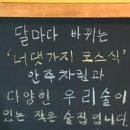 달마다 바뀌는
'너댓가지 코스식'
안주차림과
다양한 우리술이
있는 작은 술집입니다.